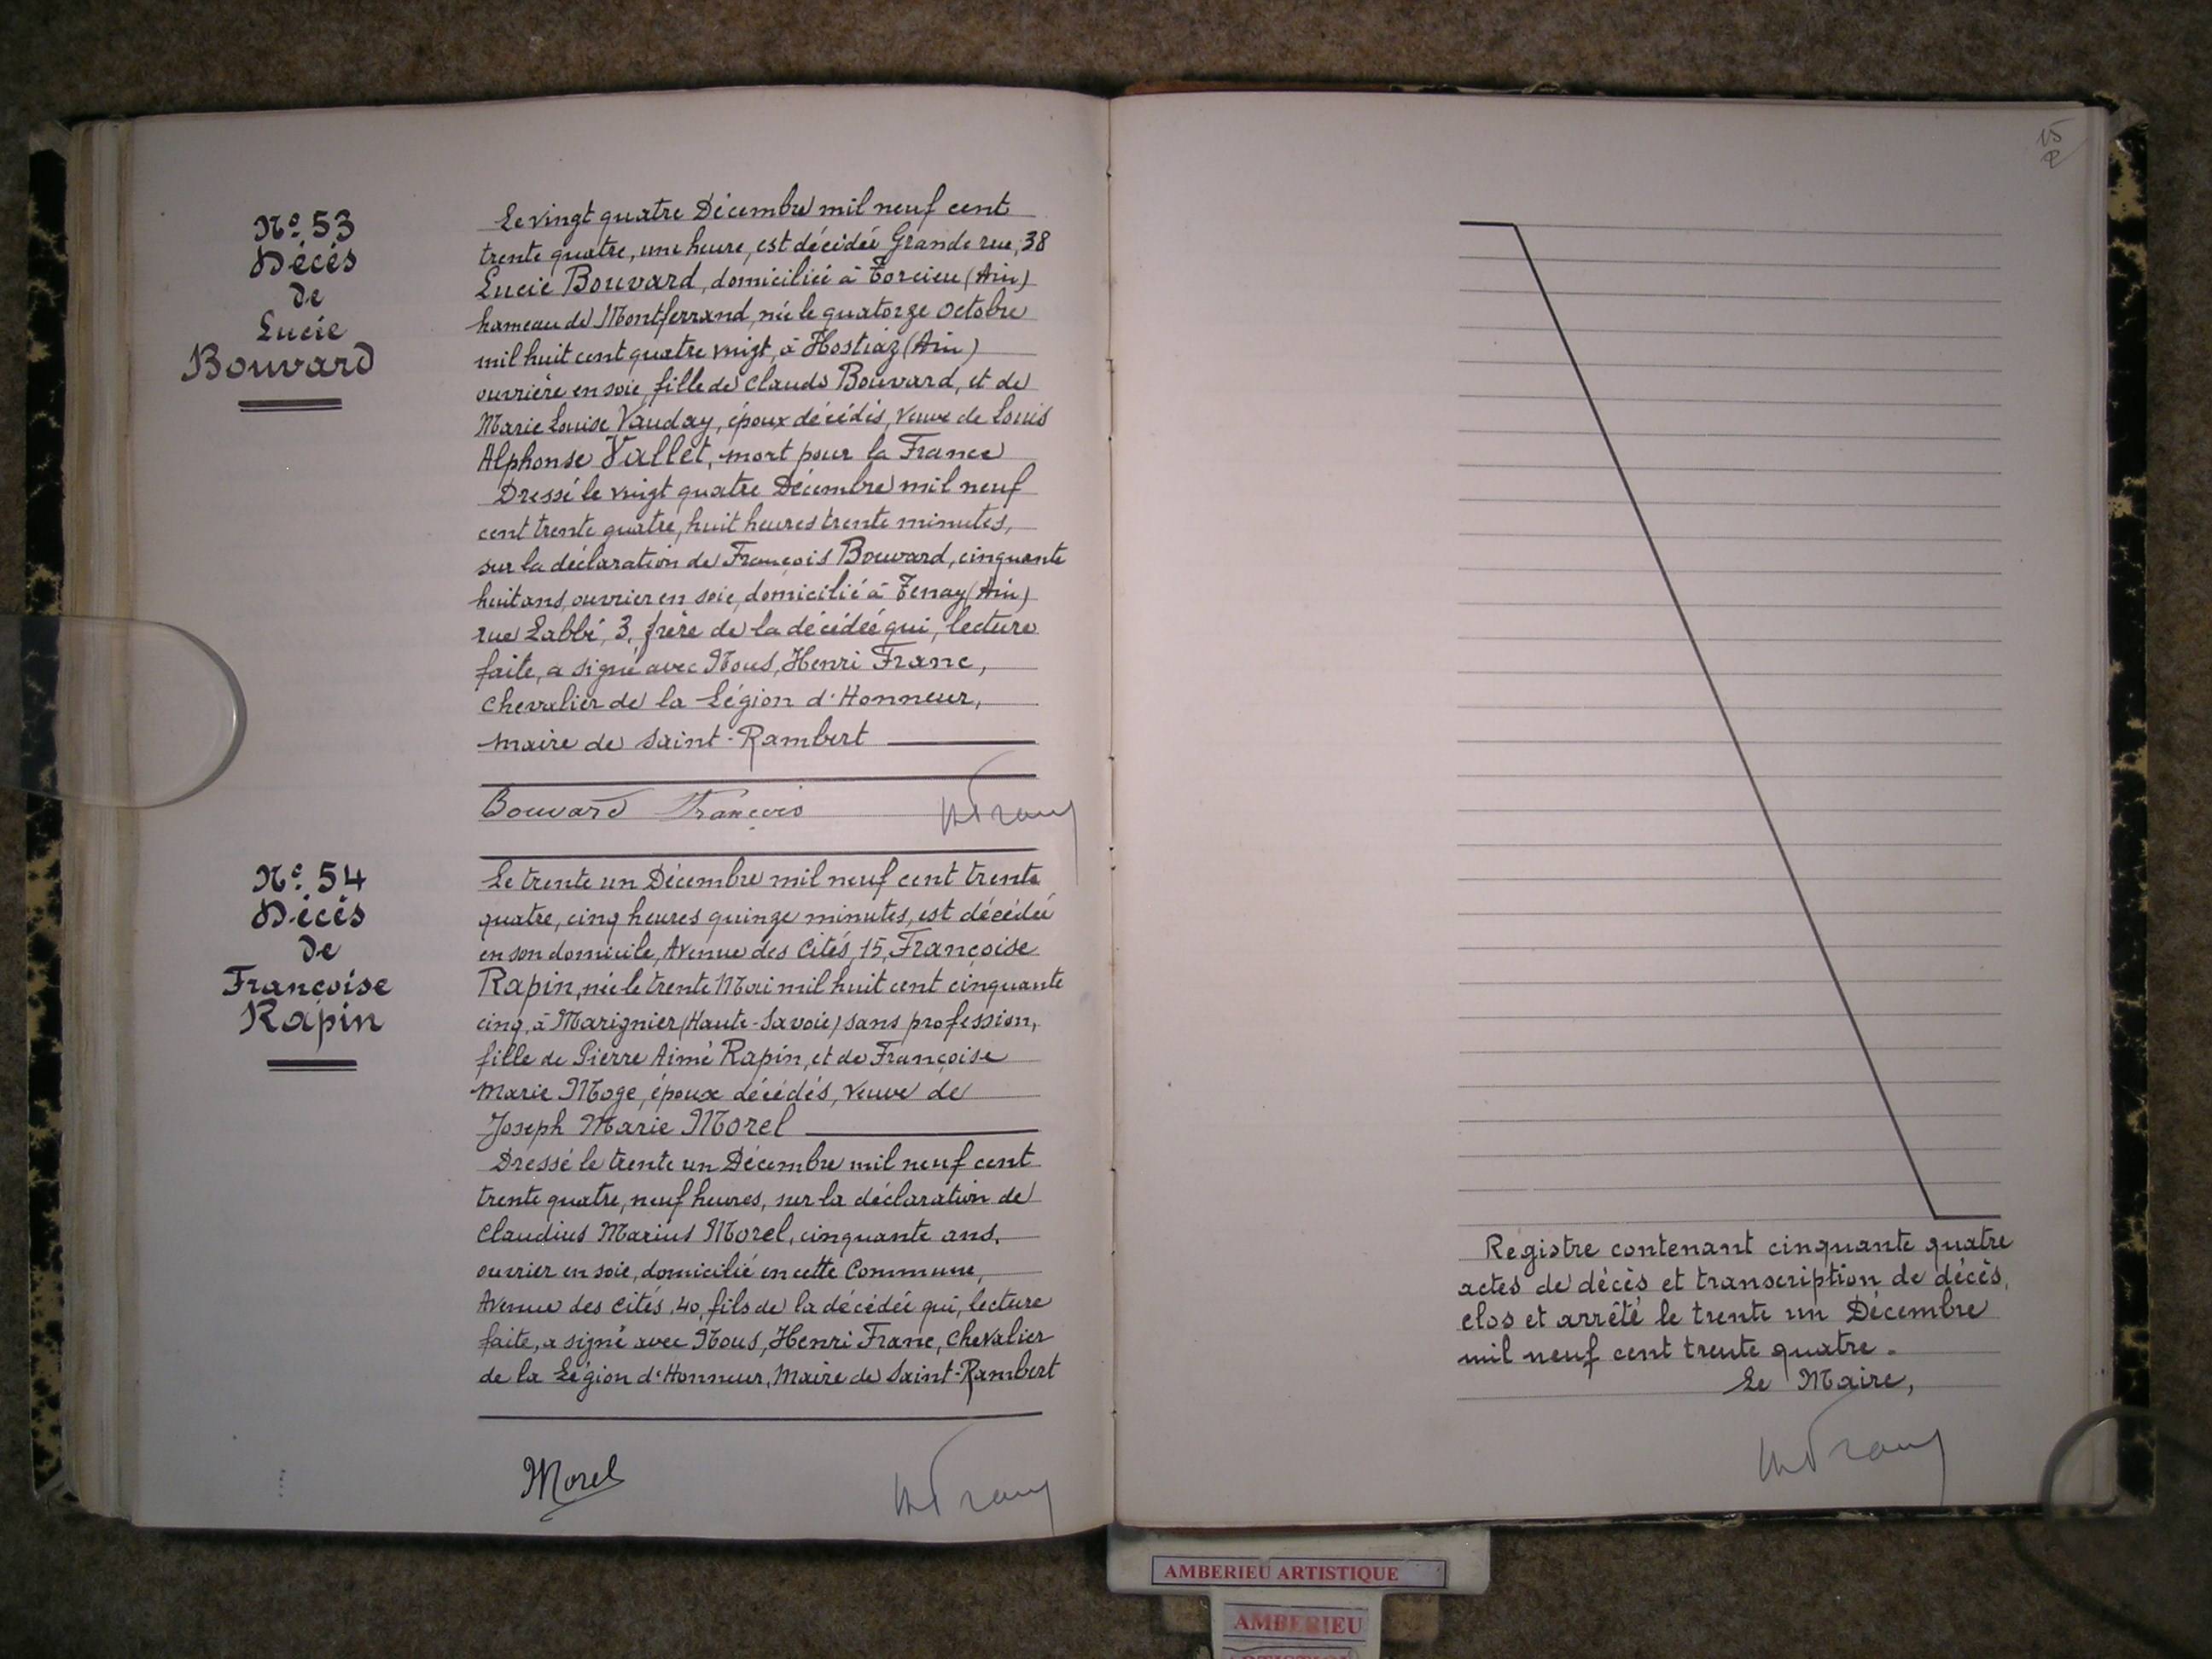 Nº 53
Décès
de
Lucie
Bouvard
Le vingt quatre Décembre mil neuf cent
trente quatre, une heure, est décédée Grande rue, 38
Lucie Bouvard, domiciliée à Torcieu (Ain)
hameau de Montferrand, née le quatorze octobre
mil huit cent quatre vingt, à Hostiaz (Ain)
ouvrière en soie, fille de Claude Bouvard, et de
Marie Louise Vauday, époux décédés, veuve de Louis
Alphonse Vallet, mort pour la France
Dressé le vingt quatre Décembre mil neuf
cent trente quatre, huit heures trente minutes,
sur la déclaration de François Bouvard, cinquante
huit ans, ouvrier en soie, domicilié à Tenay (Ain)
rue Labbé, 3, frère de la décédée qui, lecture
faite, a signé avec Nous, Henri Franc,
Chevalier de la Légion d'Honneur,
maire de Saint-Rambert
Bouvard François
Nº 54
Décès
de
Françoise
Rapin
Le trente un Décembre mil neuf cent trente
quatre, cinq heures quinze minutes, est décédée
en son domicile, Avenue des Cités, 15, Françoise
Rapin, née le trente Mai mil huit cent cinquante
cinq, à Marignier (Haute-Savoie) sans profession,
fille de Pierre Aimé Rapin, et de Françoise
Marie Moge, époux décédés, veuve de
Joseph Marie Morel
Dressé le trente un Décembre mil neuf cent
trente quatre, neuf heures, sur la déclaration de
Claudius Marius Morel, cinquante ans,
ouvrier en soie, domicilié en cette Commune,
Avenue des Cités, 40, fils de la décédée qui, lecture
faite, a signé avec Nous, Henri Franc, Chevalier
de la Légion d'Honneur, Maire de Saint-Rambert
Morel
15
Registre contenant cinquante quatre
actes de décès et transcription de décès,
clos et arrêté le trente un Décembre
mil neuf cent trente quatre.
Le Maire,
AMBERIEU ARTISTIQUE
AMBERIEU
ARTISTIQUE